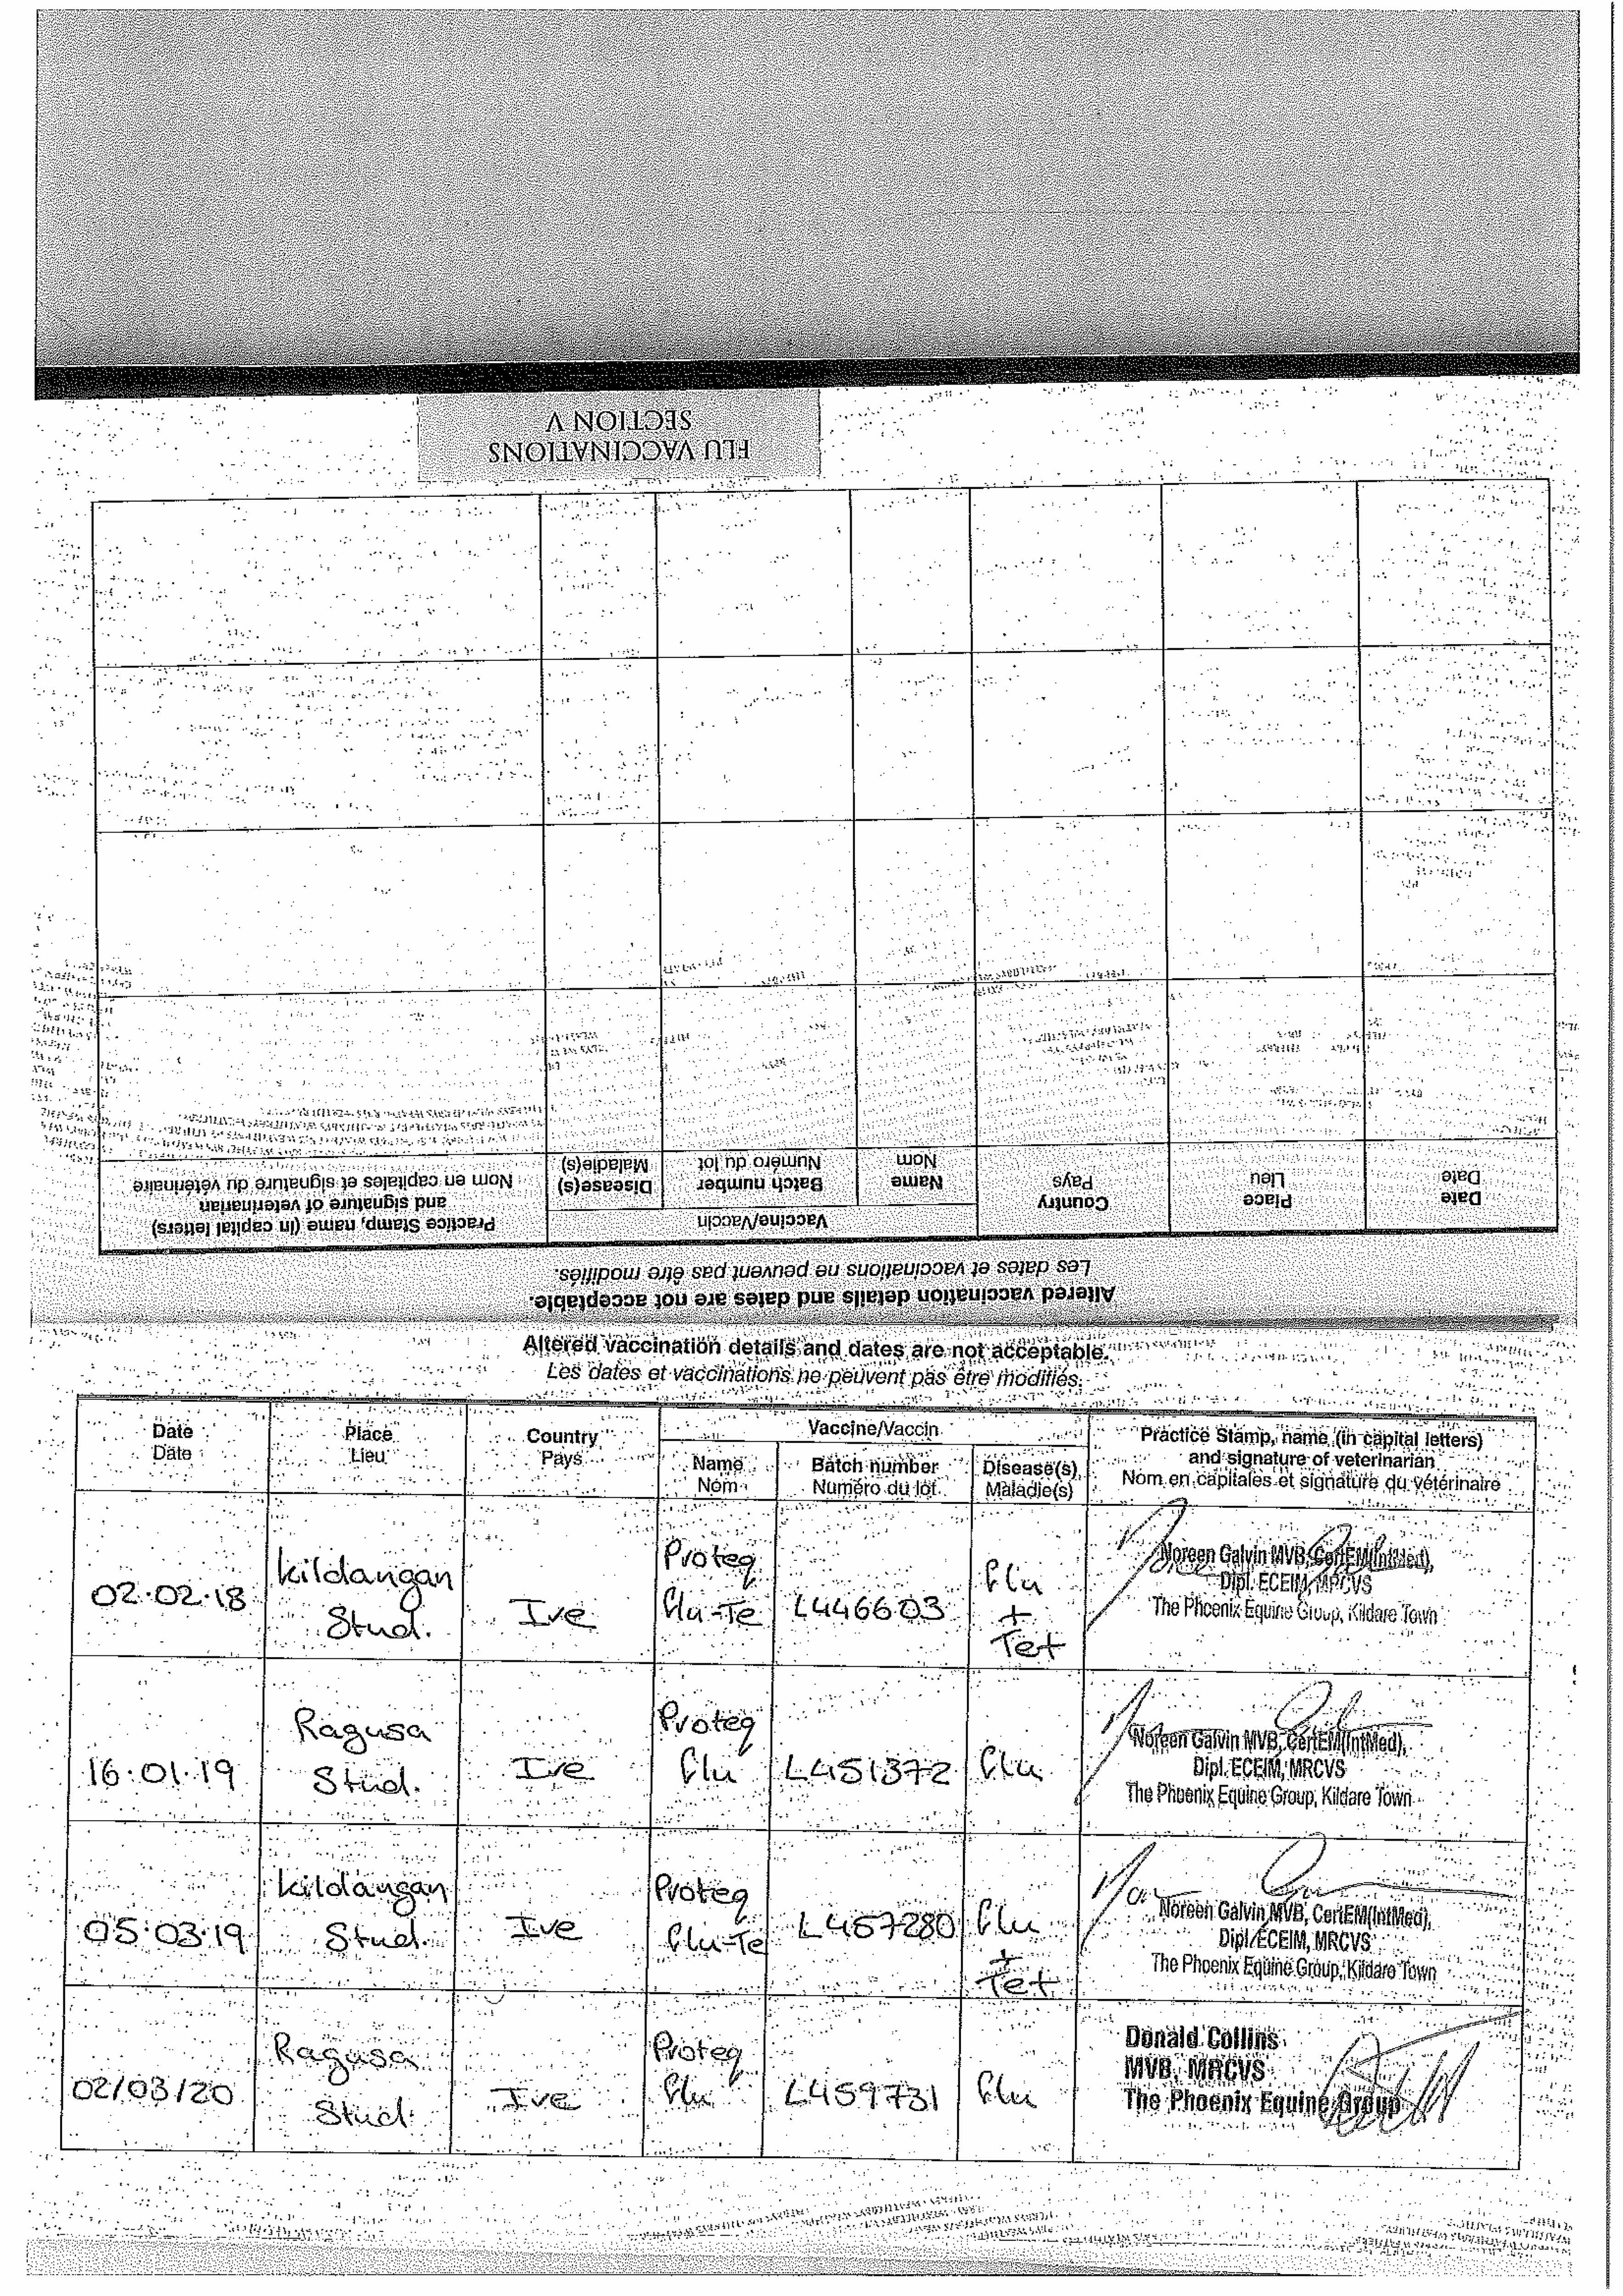 FLU VACCINATIONS
SECTION V
Altered vaccination details and dates are not acceptable.
Les dates et vaccinations ne peuvent pas être modifiés.
Date
Date
Place
Lieu
Country
Pays
Vaccine/Vaccin
Name
Nom
Batch number
Numéro du lot
Disease(s)
Maladie(s)
Practice Stamp, name (in capital letters)
and signature of veterinarian
Nom en capitales et signature du vétérinaire
Altered vaccination details and dates are not acceptable.
Les dates et vaccinations ne peuvent pas être modifiés.
Date
Date
Place
Lieu
Country
Pays
Vaccine/Vaccin
Name
Nom
Batch number
Numéro du lot
Disease(s)
Maladie(s)
Practice Stamp, name (in capital letters)
and signature of veterinarian
Nom en capitales et signature du vétérinaire
02.02.18
Kildangan
Stud.
Ire
Proteq
Flu-Te
L446603
Flu
+
Tet
Noreen Galvin MVB, CertEM(IntMed),
Dipl. ECEIM, MRCVS
The Phoenix Equine Group, Kildare Town
16.01.19
Ragusa
Stud.
Ire
Proteq
Flu
L451372
Flu
Noreen Galvin MVB, CertEM(IntMed),
Dipl. ECEIM, MRCVS
The Phoenix Equine Group, Kildare Town
05.03.19
Kildangan
Stud.
Ire
Proteq
Flu-Te
L457280
Flu
+
Tet
Noreen Galvin MVB, CertEM(IntMed),
Dipl. ECEIM, MRCVS
The Phoenix Equine Group, Kildare Town
02/03/20
Ragusa
Stud
Ire
Proteq
Flu
L459731
Flu
Donald Collins
MVB, MRCVS
The Phoenix Equine Group